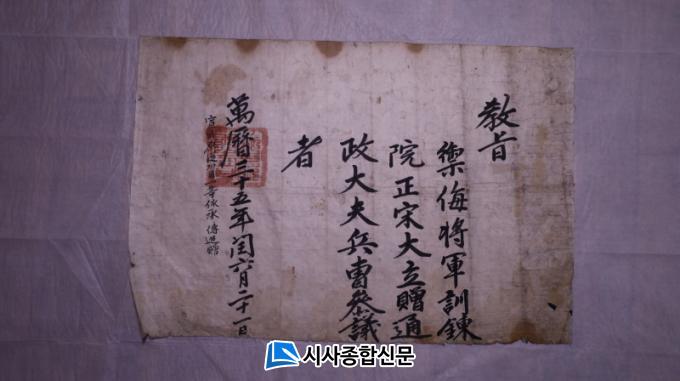 敎旨
禦侮將軍訓鍊
院正宋大立贈通
政大夫兵曹參議
者
萬曆三十五年閏六月二十一日
一等依承 傳追贈
시사종합신문